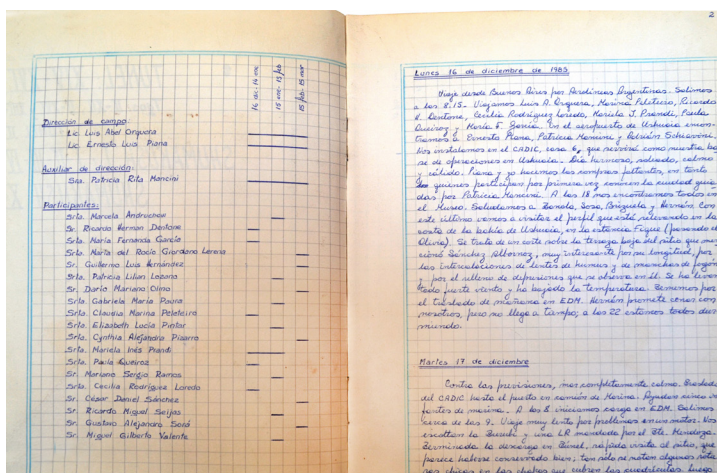 16 dic - 16 ene
15 ene - 15 feb
15 feb - 15 mar
Dirección de campo:
Lic. Luis Abel Orquera
Lic. Ernesto Luis Piana
Auxiliar de dirección:
Sra. Patricia Rita Mancini
Participantes:
Srta. Marcela Andruchow
Sr. Ricardo Hernan Dentone
Srta. María Fernanda García
Srta. Marta del Rocío Giordano Lerena
Sr. Guillermo Luis Hernández
Srta. Patricia Lilian Lozano
Sr. Darío Mariano Olmo
Srta. Gabriela María Paura
Srta. Claudia Marina Peleteiro
Srta. Elizabeth Lucía Pintar
Srta. Cynthia Alejandra Pizarro
Srta. Mariela Inés Prandi
Srta. Paula Queiroz
Sr. Mariano Sergio Ramos
Srta. Cecilia Rodríguez Loredo
Sr. César Daniel Sánchez
Sr. Ricardo Miguel Seijas
Sr. Gustavo Alejandro Sosa
Sr. Miguel Gilberto Valente
2
Lunes 16 de diciembre de 1985
Viaje desde Buenos Aires por Aerolíneas Argentinas. Salimos
a las 8.15. Viajamos Luis A. Orquera, Marina Peleteiro, Ricardo
H. Dentone, Cecilia Rodríguez Loredo, Mariela I. Prandi, Paula
Queiroz y María F. García. En el aeropuerto de Ushuaia encon-
tramos a Ernesto Piana, Patricia Mancini y Adrián Schiavini.
Nos instalamos en el CADIC, casa 6, que servirá como nuestra ba-
se de operaciones en Ushuaia. Día hermoso, soleado, calmo
y cálido. Piana y yo hacemos las compras faltantes, en tanto
quienes participan por primera vez conocen la ciudad guia-
das por Patricia Mancini. A las 18 nos encontramos todos en
el Museo. Saludamos a Zanola, Sosa, Brizuela y Hernán. Con
este último vamos a visitar el perfil que está relevando en la
costa de la bahía de Ushuaia, en la estancia Fique (pasando el
Olivia). Se trata de un corte sobre la terraza baja del sitio que men-
cionó Sánchez Albornoz, muy interesante por su longitud, por
las intercalaciones de lentes de humus y de manchas de fogón
y por el relleno de depresiones que se observa en él. Se ha levan-
tado fuerte viento y ha bajado la temperatura. Tememos por
el traslado de mañana en EDM. Hernán promete cenar con
nosotros, pero no llega a tiempo; a las 22 estamos todos dur-
miendo.
Martes 17 de diciembre
Contra las previsiones, mar completamente calmo. Traslado
del CADIC hasta el puerto en camión de Marina. Ayudan cinco in-
fantes de marina. A las 8 iniciamos carga en EDM. Salimos
cerca de las 9. Viaje muy lento por problemas en un motor. Nos
escoltan la Suzuki y una LR mandada por el Tte. Mendoza.
Terminada la descarga en Túnel, rápida visita al sitio, que
parece haberse conservado bien; tan sólo se notan algunas rota-